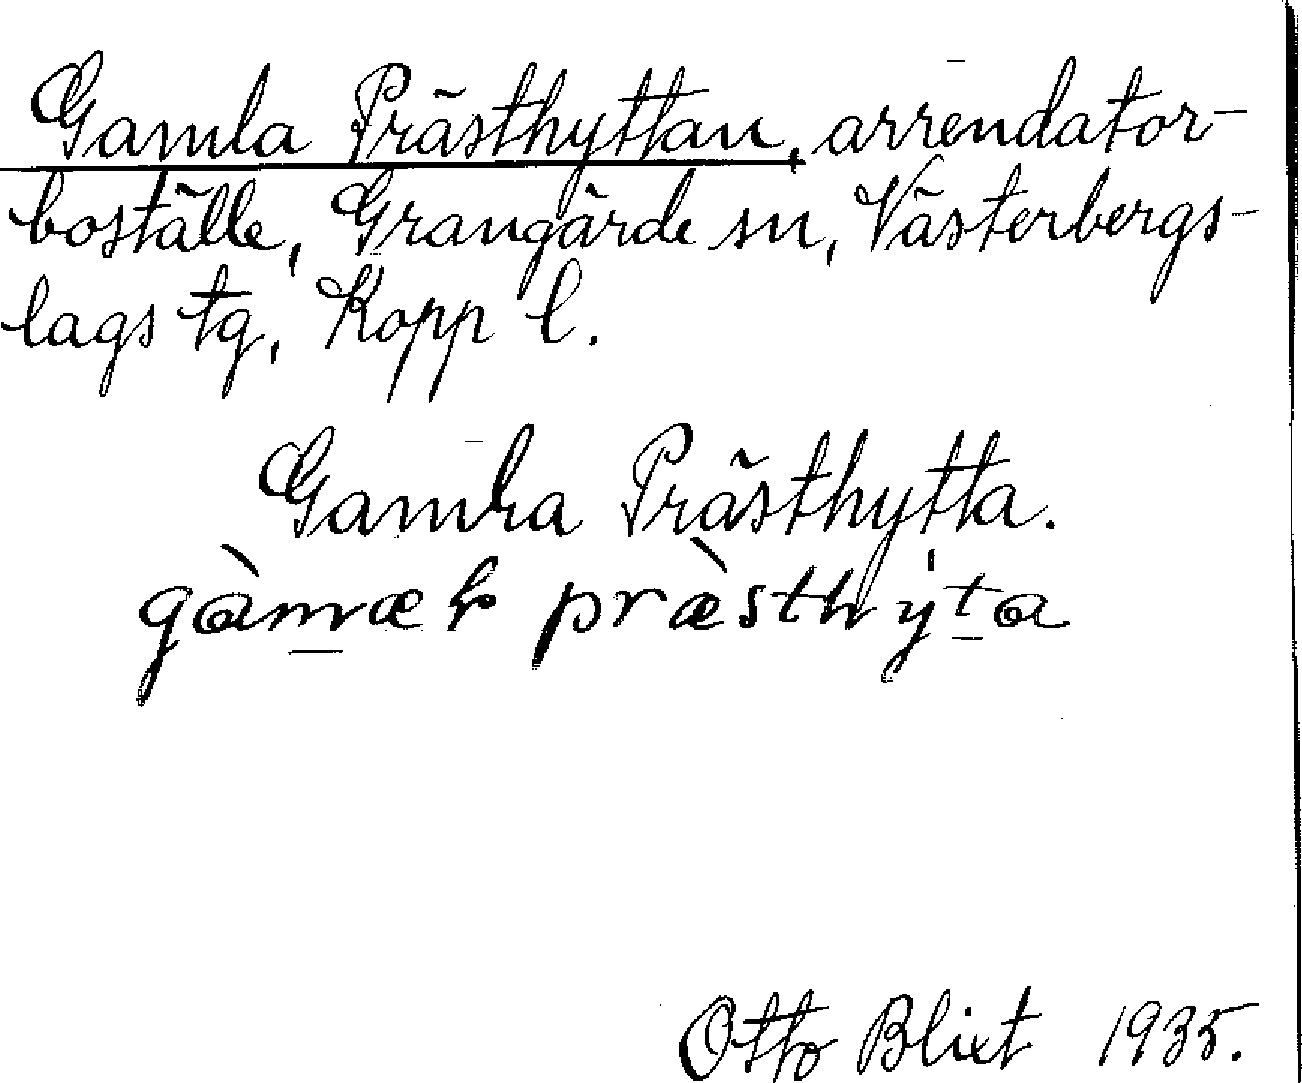 Gamla Prästhyttan, arrendator-
boställe, Grangärde sn, Västerbergs-
lags tg, Kopp l.
Gamla Prästhytta.
gàmæɫ præ̀sthýta
Otto Blixt 1935.